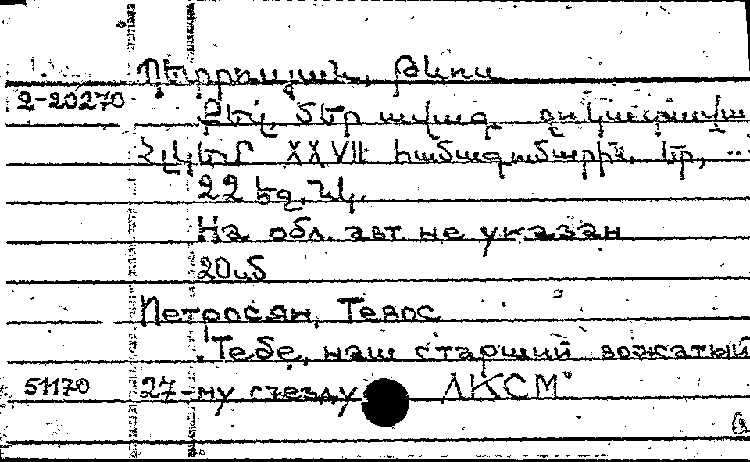 Պետրոսյան, Թևոս
2-20270 Քեզ, մեր ավագ
ՀԼԿԵՄ XXVII համագումարին. Եր, ...
22 եզ. նկ.
На обл. авт не указан
Петросян, Тевос
Тебе, наш старший вожатый
51170 27-му съезду ЛКСМ